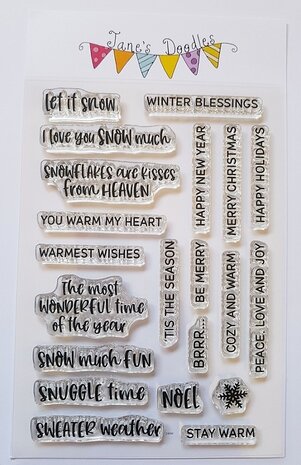 Jane's Doodles
let it snow
WINTER BLESSINGS
I love you SNOW much
SNOWFLAKES are kisses
from HEAVEN
YOU WARM MY HEART
WARMEST WISHES
The most
WONDERFUL time
of the year
SNOW much FUN
SNUGGLE time
SWEATER weather
HAPPY NEW YEAR
MERRY CHRISTMAS
HAPPY HOLIDAYS
TIS THE SEASON
BE MERRY
BRRR...
COZY AND WARM
PEACE, LOVE AND JOY
NOEL
STAY WARM